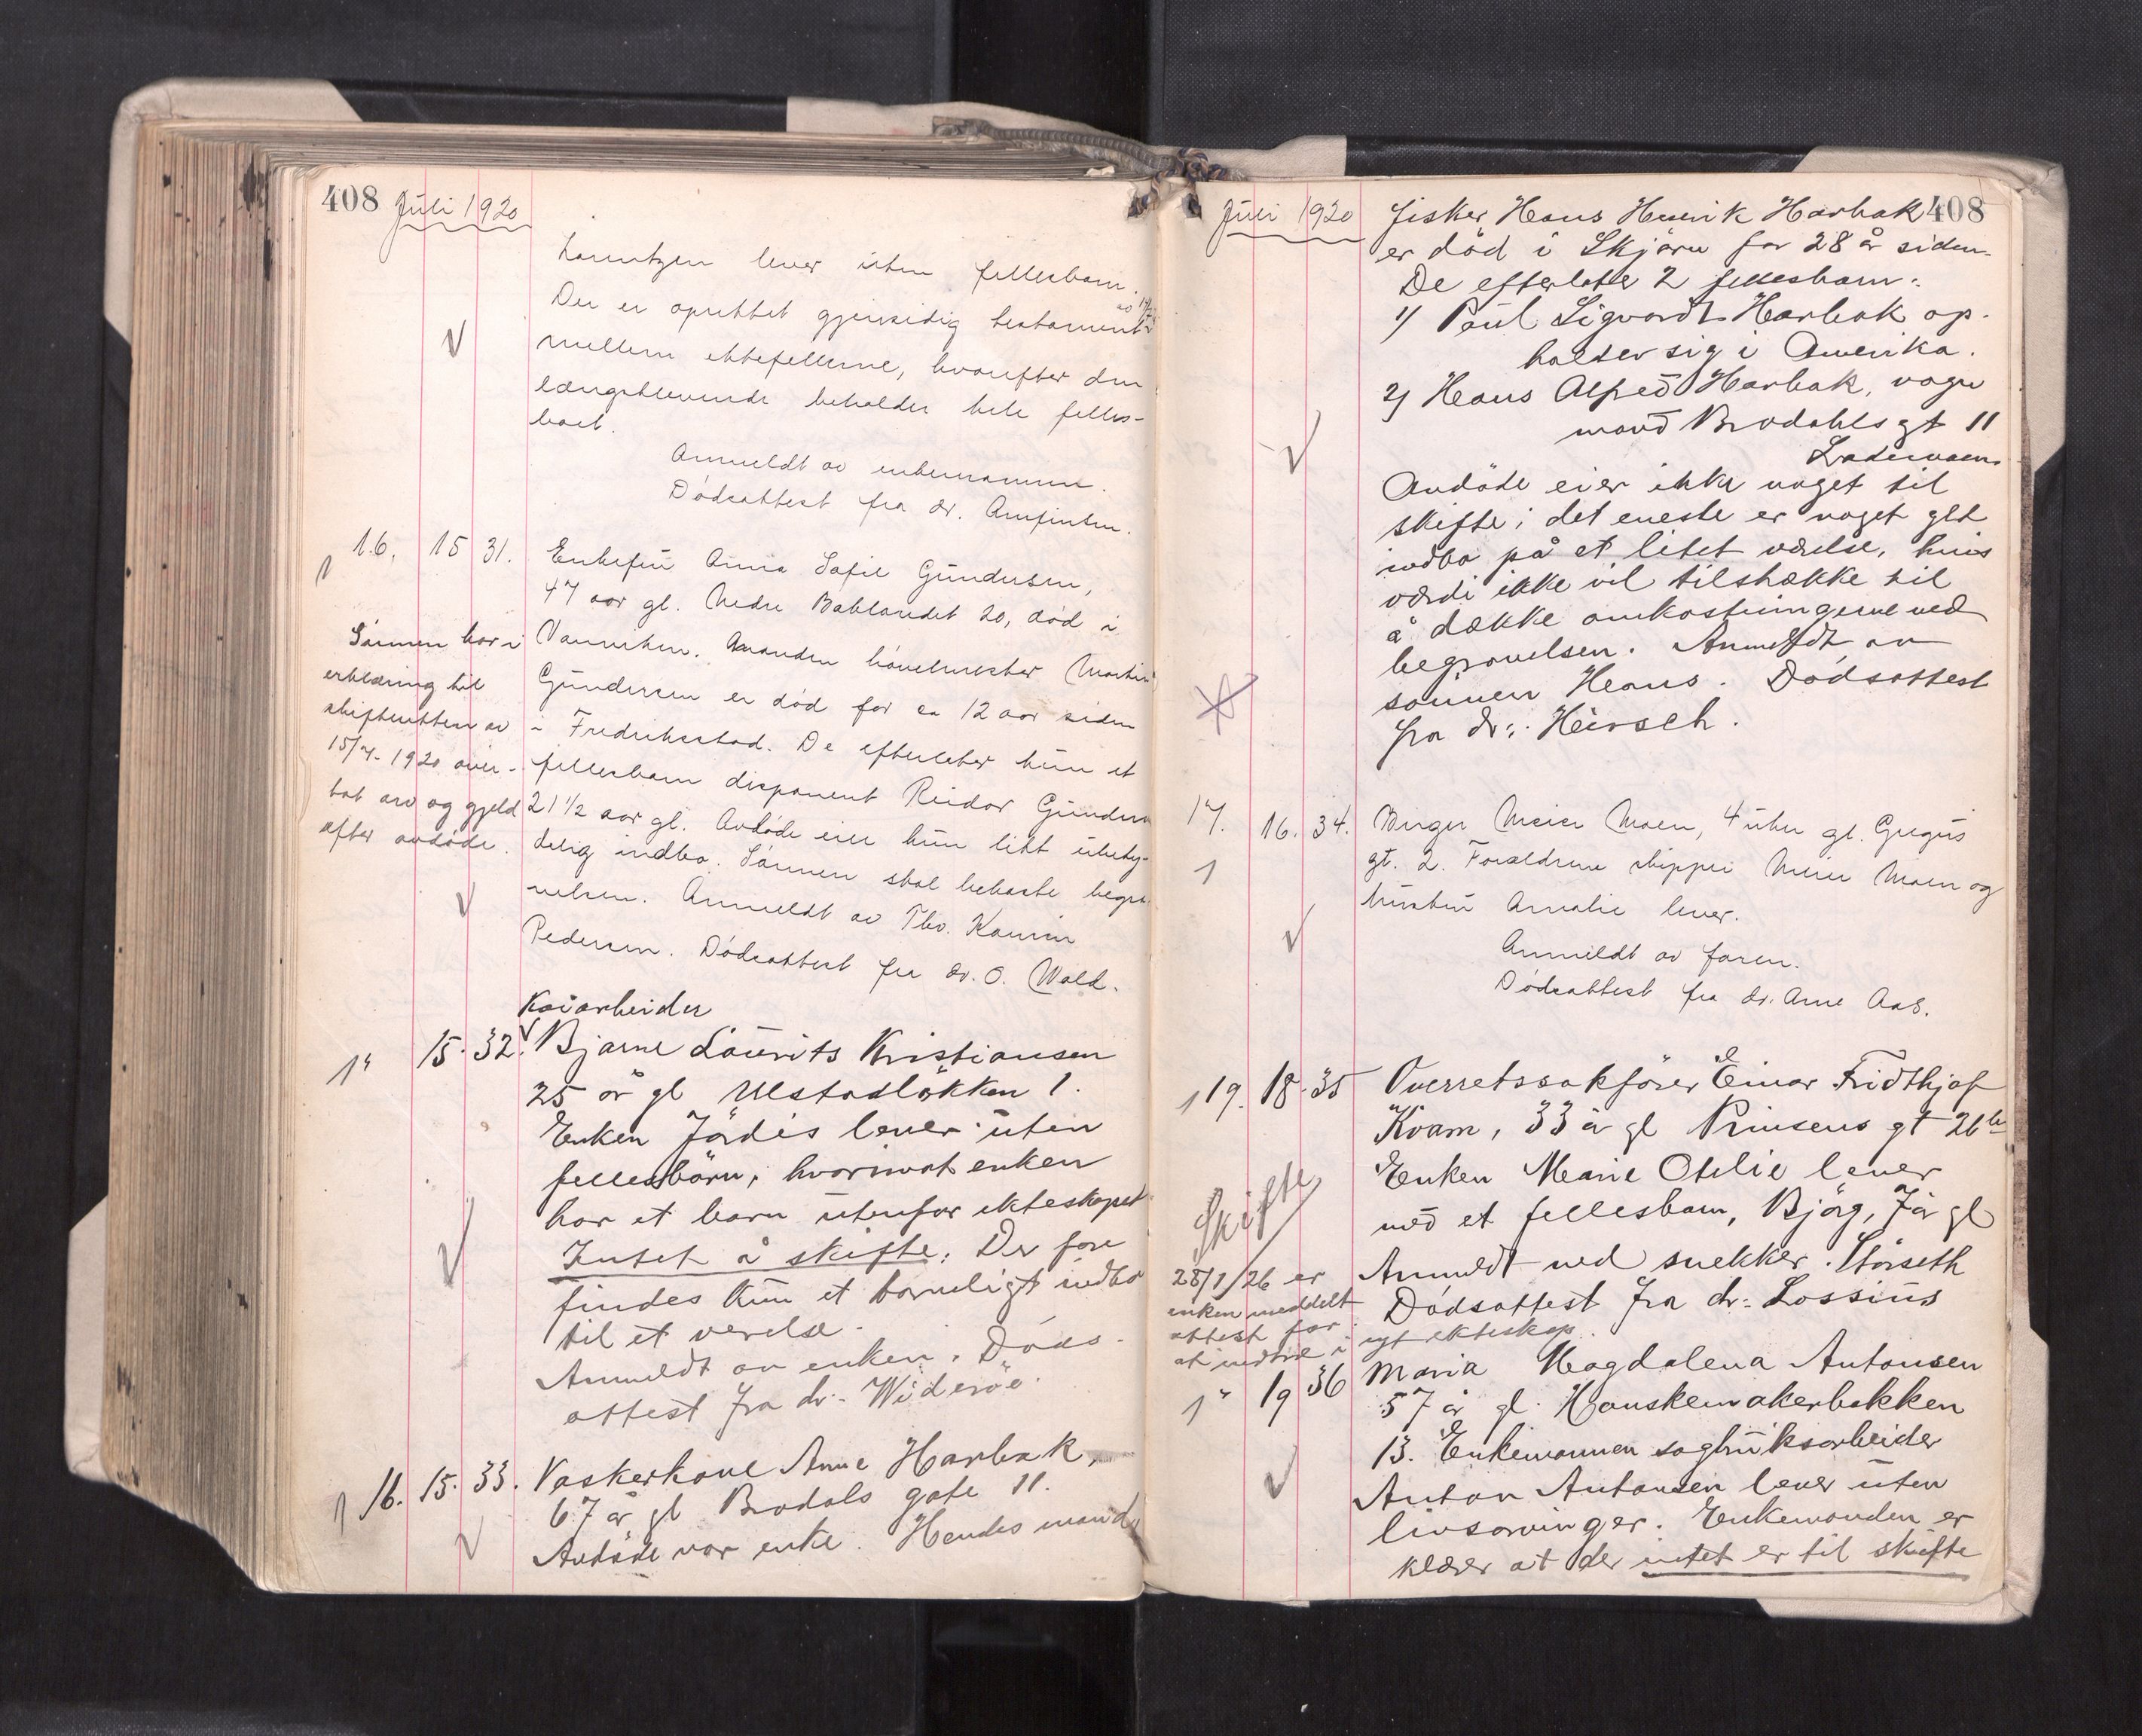 408 Juli 1920
Lauritzen lever uten fellesbarn.
Der er oprettet gjensidig testament
mellem ektefellerne, hvorefter den
længstlevende beholder hele felles-
boet.
Anmeldt av enkemannen.
Dødsattest fra dr. Arnfinsen.
1 16. 15 31. Enkefru Anna Sofie Gundersen,
47 aar gl. Nedre Baklandet 20, død i
Vanvikan. Manden høvelmester Martin
Gundersen er død for ca 12 aar siden
i Fredrikstad. De efterlater kun et
fellesbarn disponent Reidar Gundersen
21 1/2 aar gl. Avdøde eier kun litt ubety-
delig indbo. Sønnen skal bekoste begra-
velsen. Anmeldt av Tho. Kaurin
Pedersen. Dødsattest fra dr. O. Wald.
Sønnen har i
erklæring til
skifteretten av
15/7-1920 over-
tat arv og gjeld
efter avdøde.
Kaiarbeider
1 " 15. 32. Bjarne Laurits Kristiansen
25 år gl Ulstadløkken 1.
Enken Jørdis lever uten
fellesbørn, hvorimot enken
har et barn utenfor ekteskapet
Intet å skifte. Der fore
findes kun et tarveligt indbo
til et værelse.
Anmeldt av enken. Døds-
attest fra dr. Widerøe.
1 16. 15. 33. Vaskerkone Anne Harbak,
67 år gl Brodals gate 11.
Avdøde var enke. Hendes mand,
Juli 1920 408
fisker Hans Henrik Harbak
er død i Skjørn for 28 år siden.
De efterlater 2 fellesbarn:
1/ Paul Sigvardt Harbak op-
holder sig i Amerika.
2/ Hans Alfred Harbak, vogn
mand Brodahls gt 11
Lademoen.
Avdøde eier ikke noget til
skifte; det eneste er noget glt
indbo på et litet værelse, hvis
værdi ikke vil tilstrække til
å dække omkostningerne ved
begravelsen. Anmeldt av
sønnen Hans. Dødsattest
fra dr. Hirsch.
17. 16. 34. Birger Meier Moen, 4 uker gl. Gregus
1 gt. 2. Forældrene skipper Meier Moen og
hustru Amalie lever.
Anmeldt av faren.
Dødsattest fra dr. Arne Aas.
1 19. 18. 35 Overretssakfører Einar Fridthjof
Kvam, 33 år gl Prinsens gt 26 b
Enken Marie Otelie lever
med et fellesbarn, Bjørg, 7 år gl
Anmeldt ved snekker Størseth
Dødsattest fra dr. Lossius
Skifte
28/1/26 er
enken meddelt
attest for
at indtræ i nyt ekteskap.
1 " 19 36 Maria Magdalena Antonsen
57 år gl. Hanskemakerbakken
13. Enkemannen sagbruksarbeider
Anton Antonsen lever uten
livsarvinger. Enkemanden er
klærer at der intet er til skifte